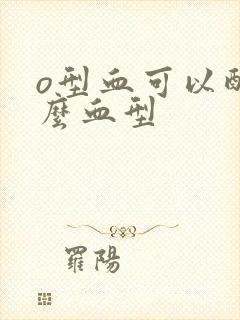 o型血可以配
麼血型
羅陽